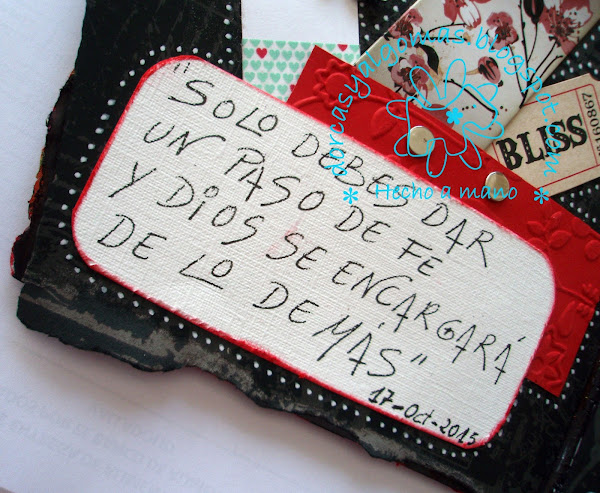 "SOLO DEBES DAR
UN PASO DE FE
Y DiOS SE ENCARGARÁ
DE LO DEMÁS"
17-Oct-2015
BLISS
dorcasyalgomas.blogspot.com
* Hecho a mano *